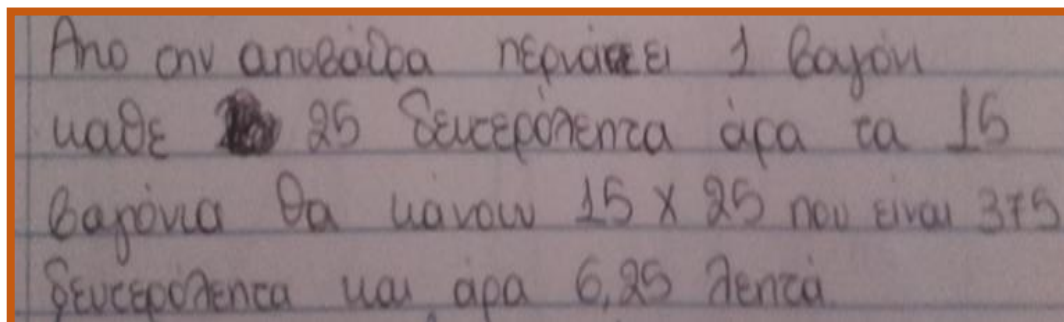 Απο την αποβάθρα περνάει 1 βαγόνι
καθε 25 δευτερόλεπτα άρα τα 15
βαγόνια θα κάνουν 15 x 25 που είναι 375
δευτερόλεπτα και άρα 6,25 λεπτά